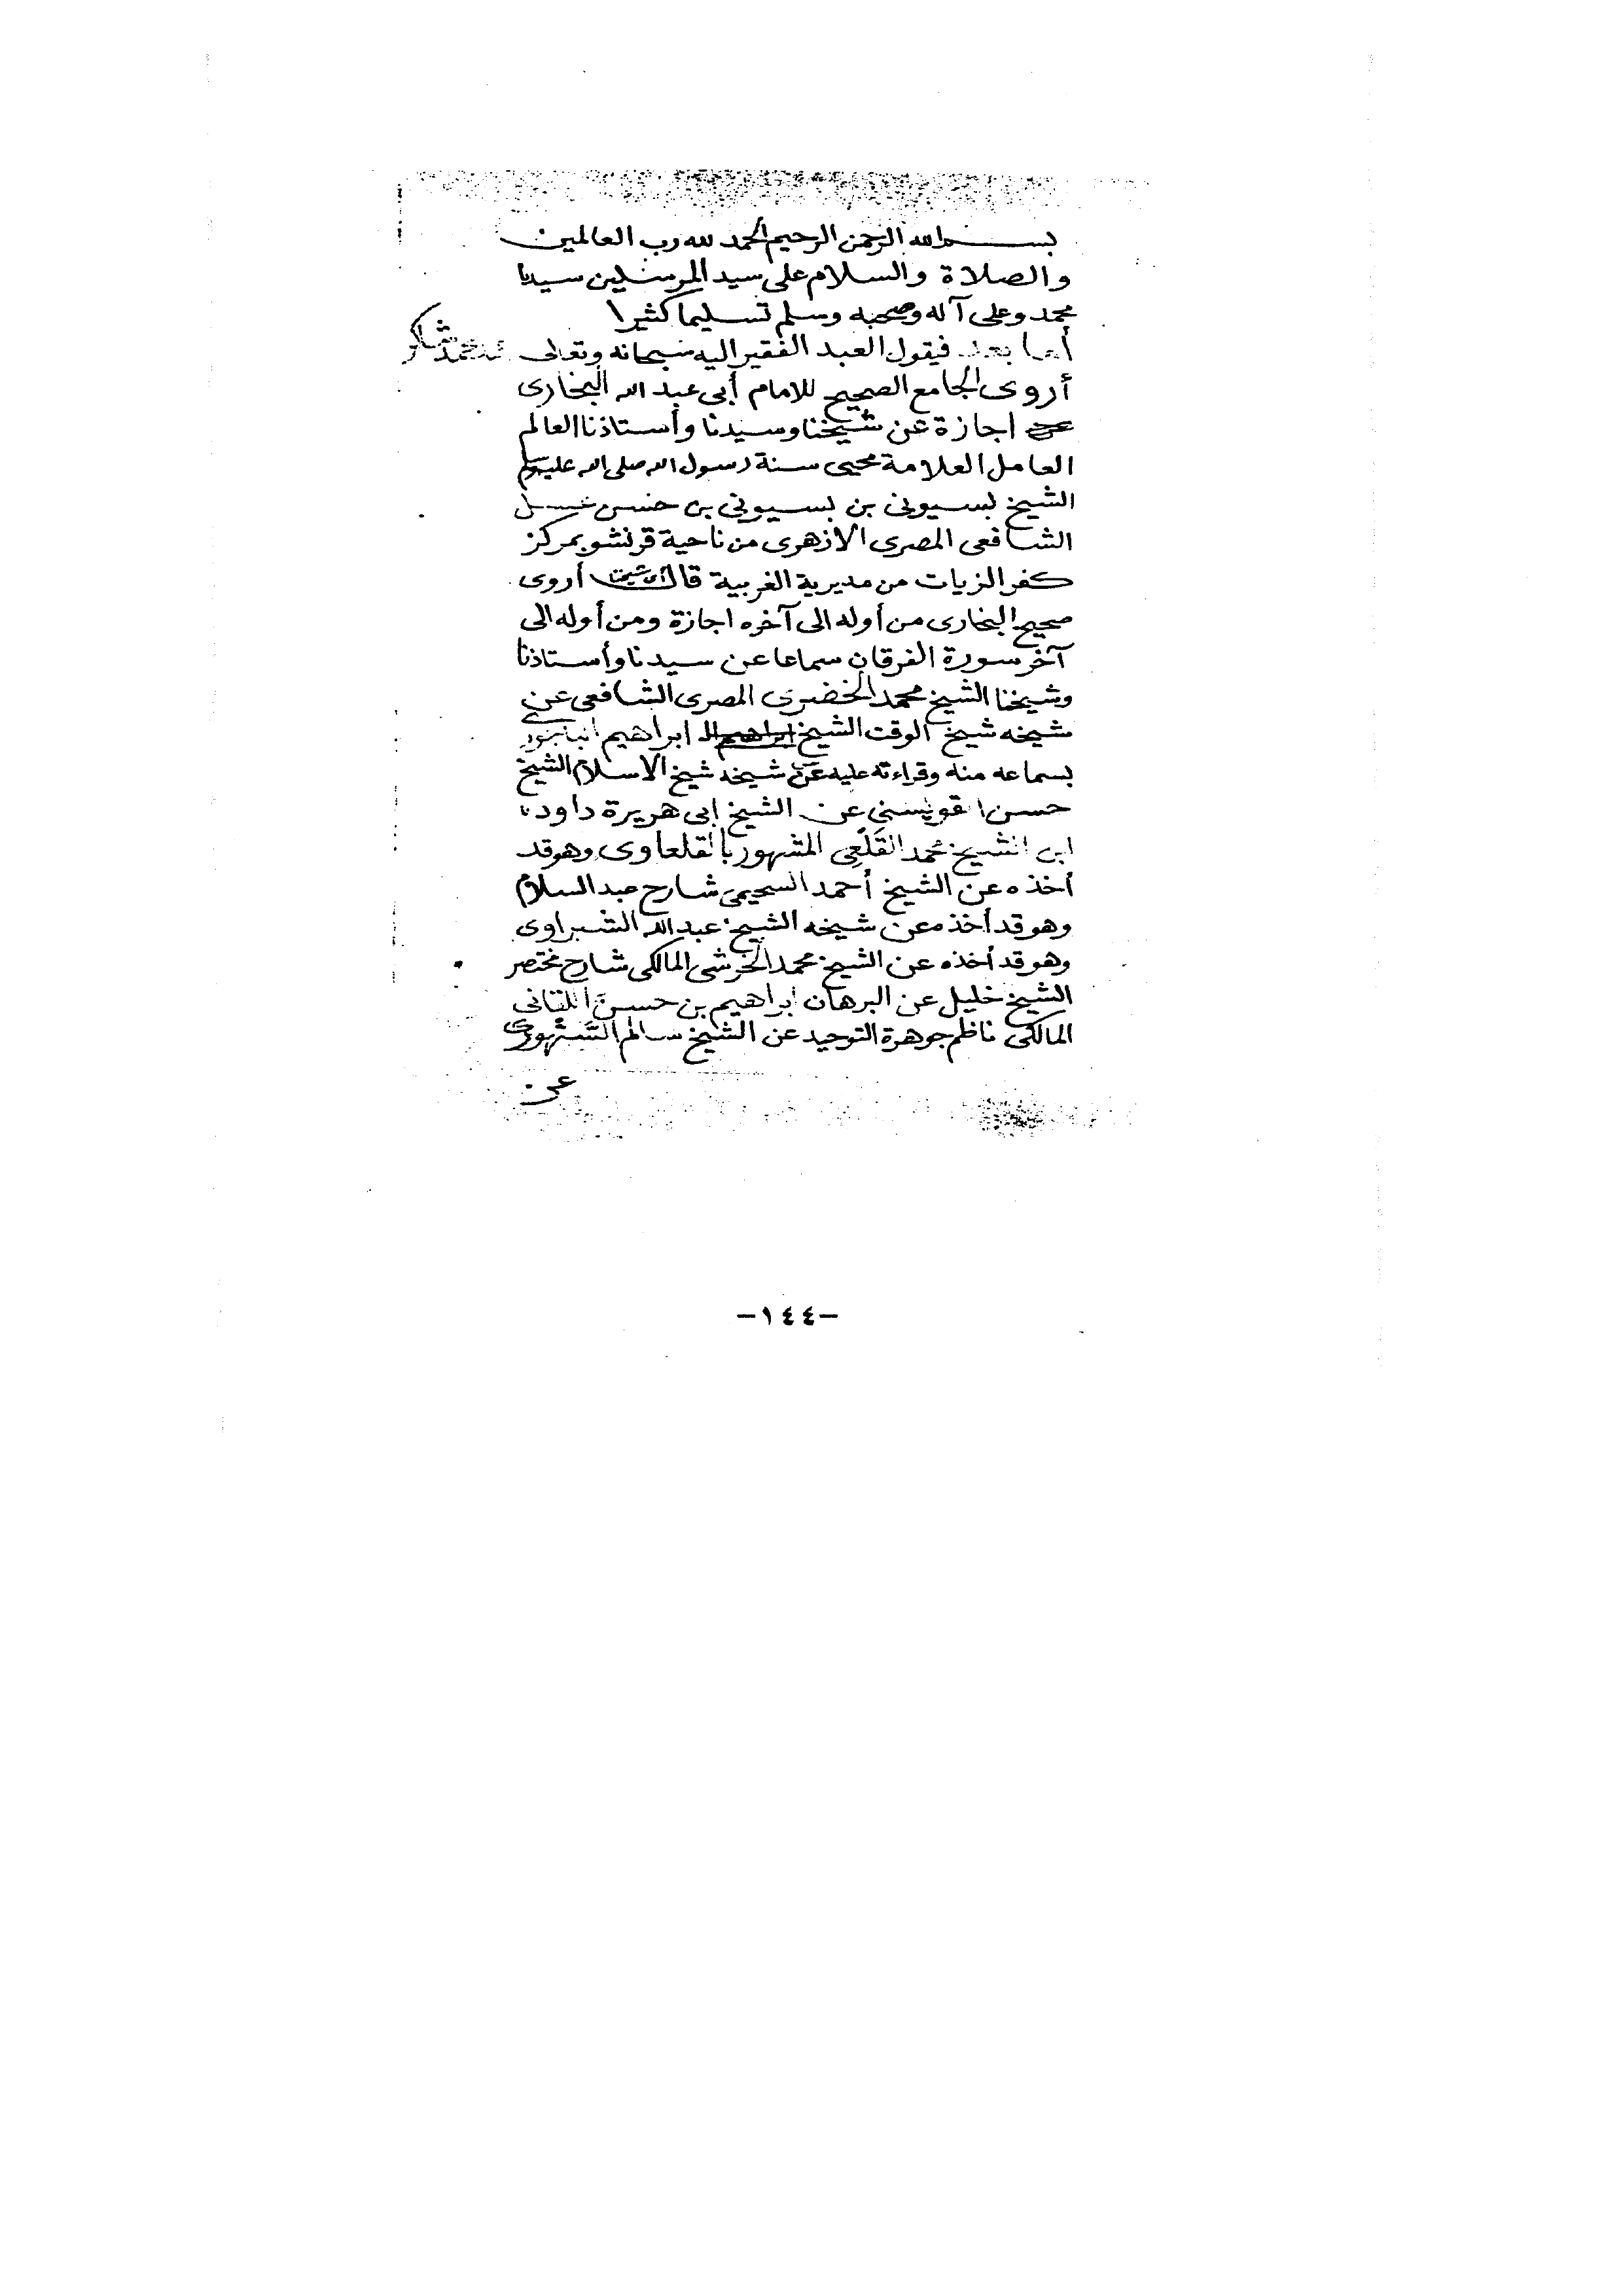 بسم الله الرحمن الرحيم الحمد لله رب العالمين
والصلاة والسلام على سيد المرسلين سيدنا
محمد وعلى آله وصحبه وسلم تسليما كثيرا
أما بعد فيقول العبد الفقير اليه سبحانه وتعالى محمد شاكر
أروى الجامع الصحيح للامام أبى عبد الله البخارى
اجازة عن شيخنا وسيدنا وأستاذنا العالم
العامل العلامة محيى سنة رسول الله صلى الله عليه وسلم
الشيخ بسيونى بن بسيونى بن حسن عسل
الشافعى المصرى الازهرى من ناحية قرنشو بمركز
كفر الزيات من مديرية الغربية قال أى شيخنا أروى
صحيح البخارى من أوله الى آخره اجازة ومن أوله الى
آخر سورة الفرقان سماعا عن سيدنا وأستاذنا
وشيخنا الشيخ محمد الخضرى المصرى الشافعى عن
شيخه شيخ الوقت الشيخ ابراهيم الباجورى
بسماعه منه وقراءته عليه عن شيخه شيخ الاسلام الشيخ
حسن القويسنى عن الشيخ ابى هريرة داود
ابن الشيخ محمد القَلْعِى المشهور بالقلعاوى وهو قد
أخذه عن الشيخ أحمد السحيمى شارح عبد السلام
وهو قد أخذه عن شيخه الشيخ عبد الله الشبراوى
وهو قد أخذه عن الشيخ محمد الخرشى المالكى شارح مختصر
الشيخ خليل عن البرهان ابراهيم بن حسن اللقانى
المالكى ناظم جوهرة التوحيد عن الشيخ سالم السنهورى
عن
-١٤٤-